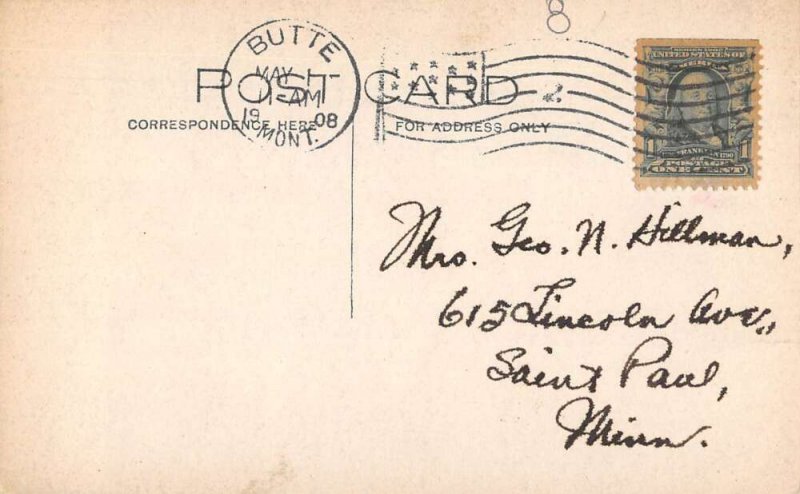 8
BUTTE
MAY 1
11-AM
1908
MONT.
2
POST CARD
CORRESPONDENCE HERE
FOR ADDRESS ONLY
UNITED STATES OF
AMERICA
FRANKLIN
1 POSTAGE 1
ONE CENT
Mrs. Geo. N. Hillman,
615 Lincoln Ave.,
Saint Paul,
Minn.